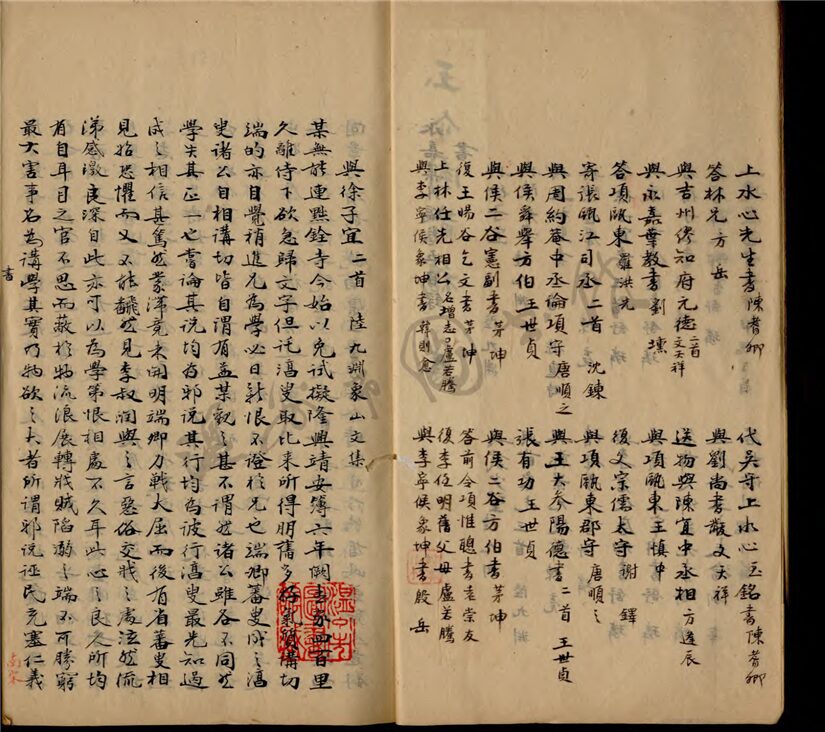 上水心先生書陳耆卿
答林兄方岳
與吉州繆知府元德二首文天祥
與永嘉葉教書劉壎
答項甌東羅洪先
寄張甌江司丞二首 沈鍊
與周約菴中丞論項守唐順之
與侯舜舉方伯王世貞
與侯二谷憲副書茅坤
復王暘谷乞文書茅坤
上林任先相公名增志盧若騰
與李寧侯象坤書韓則愈
代吳守上水心玉銘書陳耆卿
與劉尚書黻文天祥
送物與陳宜中丞相方逢辰
與項甌東王慎中
復文宗儒太守謝鐸
與項甌東郡守唐順之
與王大參陽德書二首 王世貞
張有功王世貞
與侯二谷方伯書茅坤
答前令項惟聰書袁崇友
復李任明舊父母盧若騰
與李寧侯象坤書殷岳
與徐子宜二首陸九淵象山文集
某無能連黜銓寺今始以免試擬隆興靖安簿六年闕去家四百里
久離侍下欲急歸文字但託淳叟取比來所得朋舊多好氣質講切
端的亦自覺稍進兄為學必日新恨不證於兄也端卿蕃叟成之淳
叟諸公自相講切皆自謂有益某觀之甚不謂然諸公雖各不同然
學失其正一也嘗論其說均為邪說其行均為詖行淳叟最先知過
成之相信甚篤然蒙滯竟未開明端卿力戰大屈而後有省蕃叟相
見始恐懼而又不能翻然見李叔潤與之言惡俗交戕之處泫然流
涕感激良深自此亦可以為學第恨相處不久耳此心之良人所均
有自耳目之官不思而蔽於物流浪展轉戕賊陷溺之端不可勝窮
最大害事名為講學其實乃物欲之大者所謂邪說誣民充塞仁義
書
南宋